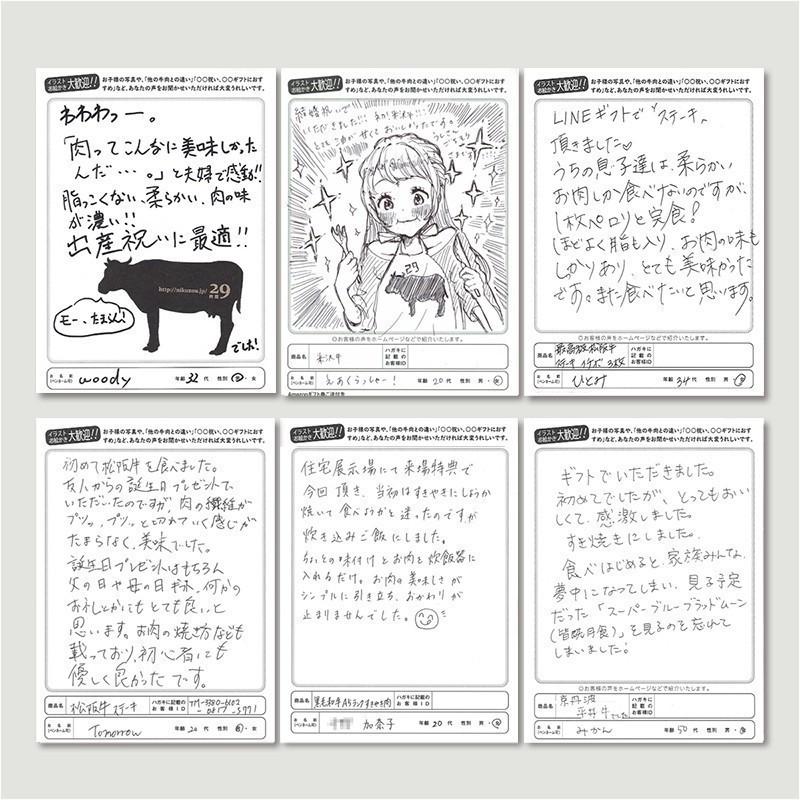 イラスト
お絵かき
大歓迎!!
お子様の写真や、「他の牛肉との違い」「〇〇祝い、〇〇ギフトにおす
すめ」など、あなたの声をお聞かせいただければ大変うれしいです。
わわわっー。
「肉ってこんなに美味しかった
んだ…。」と夫婦で感動!!
脂っこくない、柔らかい、肉の味
が濃い!!
出産祝いに最適!!
http://nikuzou.jp/
29
モー、たまらん!
でしホ!
お名前
(ペンネーム可)
woody
年齢 32 代 性別 男・女
イラスト
お絵かき
大歓迎!!
お子様の写真や、「他の牛肉との違い」「〇〇祝い、〇〇ギフトにおす
すめ」など、あなたの声をお聞かせいただければ大変うれしいです。
結婚祝いで
いただきました!!!
とても油が甘くておいしかったです。
29
○お客様の声をホームページなどで紹介いたします。
商品名
米沢牛
ハガキに
記載の
お客様ID
お名前
(ペンネーム可)
えあくらっしゃー!
年齢 20 代 性別 男・女
イラスト
お絵かき
大歓迎!!
お子様の写真や、「他の牛肉との違い」「〇〇祝い、〇〇ギフトにおす
すめ」など、あなたの声をお聞かせいただければ大変うれしいです。
LINEギフトで"ステーキ"
頂きました♡
うちの息子達は、柔らかい
お肉しか食べないのですが、
1枚ペロリと完食!
ほどよく脂も入り、お肉の味も
しっかりあり、とても美味かった
です。また食べたいと思います。
○お客様の声をホームページなどで紹介いたします。
商品名
最高級松阪牛
ステーキ イチボ 3枚
ハガキに
記載の
お客様ID
お名前
(ペンネーム可)
ひとみ
年齢 34 代 性別 男・女
イラスト
お絵かき
大歓迎!!
お子様の写真や、「他の牛肉との違い」「〇〇祝い、〇〇ギフトにおす
すめ」など、あなたの声をお聞かせいただければ大変うれしいです。
初めて松阪牛を食べました。
友人からの誕生日プレゼントで
いただいたのですが、肉の繊維が
プツッ、プツッと切れていく感じが
たまらなく、美味でした。
誕生日プレゼントはもちろん
父の日や母の日ギフト、何かの
お礼しとかにもとても良いと
思います。お肉の焼き方なども
載っており、初心者にも
優しく良かったです。
商品名
松阪牛ステーキ
ハガキに記載の
お客様ID
お名前
(ペンネーム可)
Tomorrow
年齢 20 代 性別 男・女
イラスト
お絵かき
大歓迎!!
お子様の写真や、「他の牛肉との違い」「〇〇祝い、〇〇ギフトにおす
すめ」など、あなたの声をお聞かせいただければ大変うれしいです。
住宅展示場にて来場特典で
今回頂き、当初はすきやきにしようか
焼いて食べようかと迷ったのですが
炊き込みご飯にしました。
ちょっとの味付けとお肉を炊飯器に
入れるだけ。お肉の美味しさが
シンプルに引き立ち、おかわりが
止まりませんでした。
商品名
黒毛和牛A5ランクすきやき肉
ハガキに記載の
お客様ID
お名前
(ペンネーム可)
加奈子
年齢 20 代 性別 男・女
イラスト
お絵かき
大歓迎!!
お子様の写真や、「他の牛肉との違い」「〇〇祝い、〇〇ギフトにおす
すめ」など、あなたの声をお聞かせいただければ大変うれしいです。
ギフトでいただきました。
初めてでしたが、とってもおい
しくて、感激しました。
すき焼きにしました。
食べはじめると、家族みんな、
夢中になってしまい、見る予定
だった「スーパーブルーブラッドムーン
(皆既月食)」を見るのを忘れて
しまいました!
○お客様の声をホームページなどで紹介いたします。
商品名
京丹波
平井牛でした
ハガキに
記載の
お客様ID
お名前
(ペンネーム可)
みかん
年齢 50 代 性別 男・女